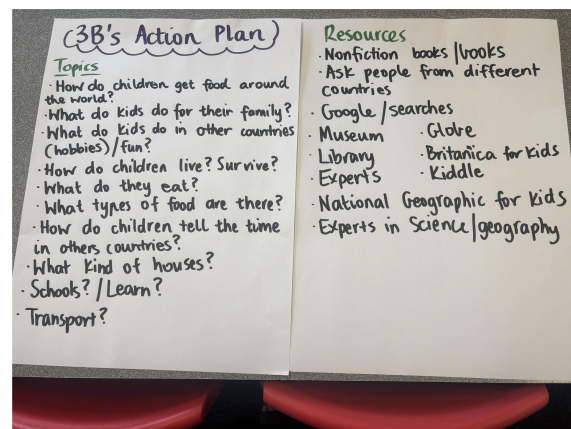 (3B's Action Plan)
Topics
· How do children get food around
the world?
· What do kids do for their family?
· What do kids do in other countries
(hobbies)/fun?
· How do children live? Survive?
· What do they eat?
· What types of food are there?
· How do children tell the time
in others countries?
· What kind of houses?
· Schools? / Learn?
· Transport?
Resources
· Nonfiction books/books
· Ask people from different
countries
· Google/searches
· Museum · Globe
· Library · Britanica for kids
· Experts · Kiddle
· National Geographic for kids
· Experts in Science/geography